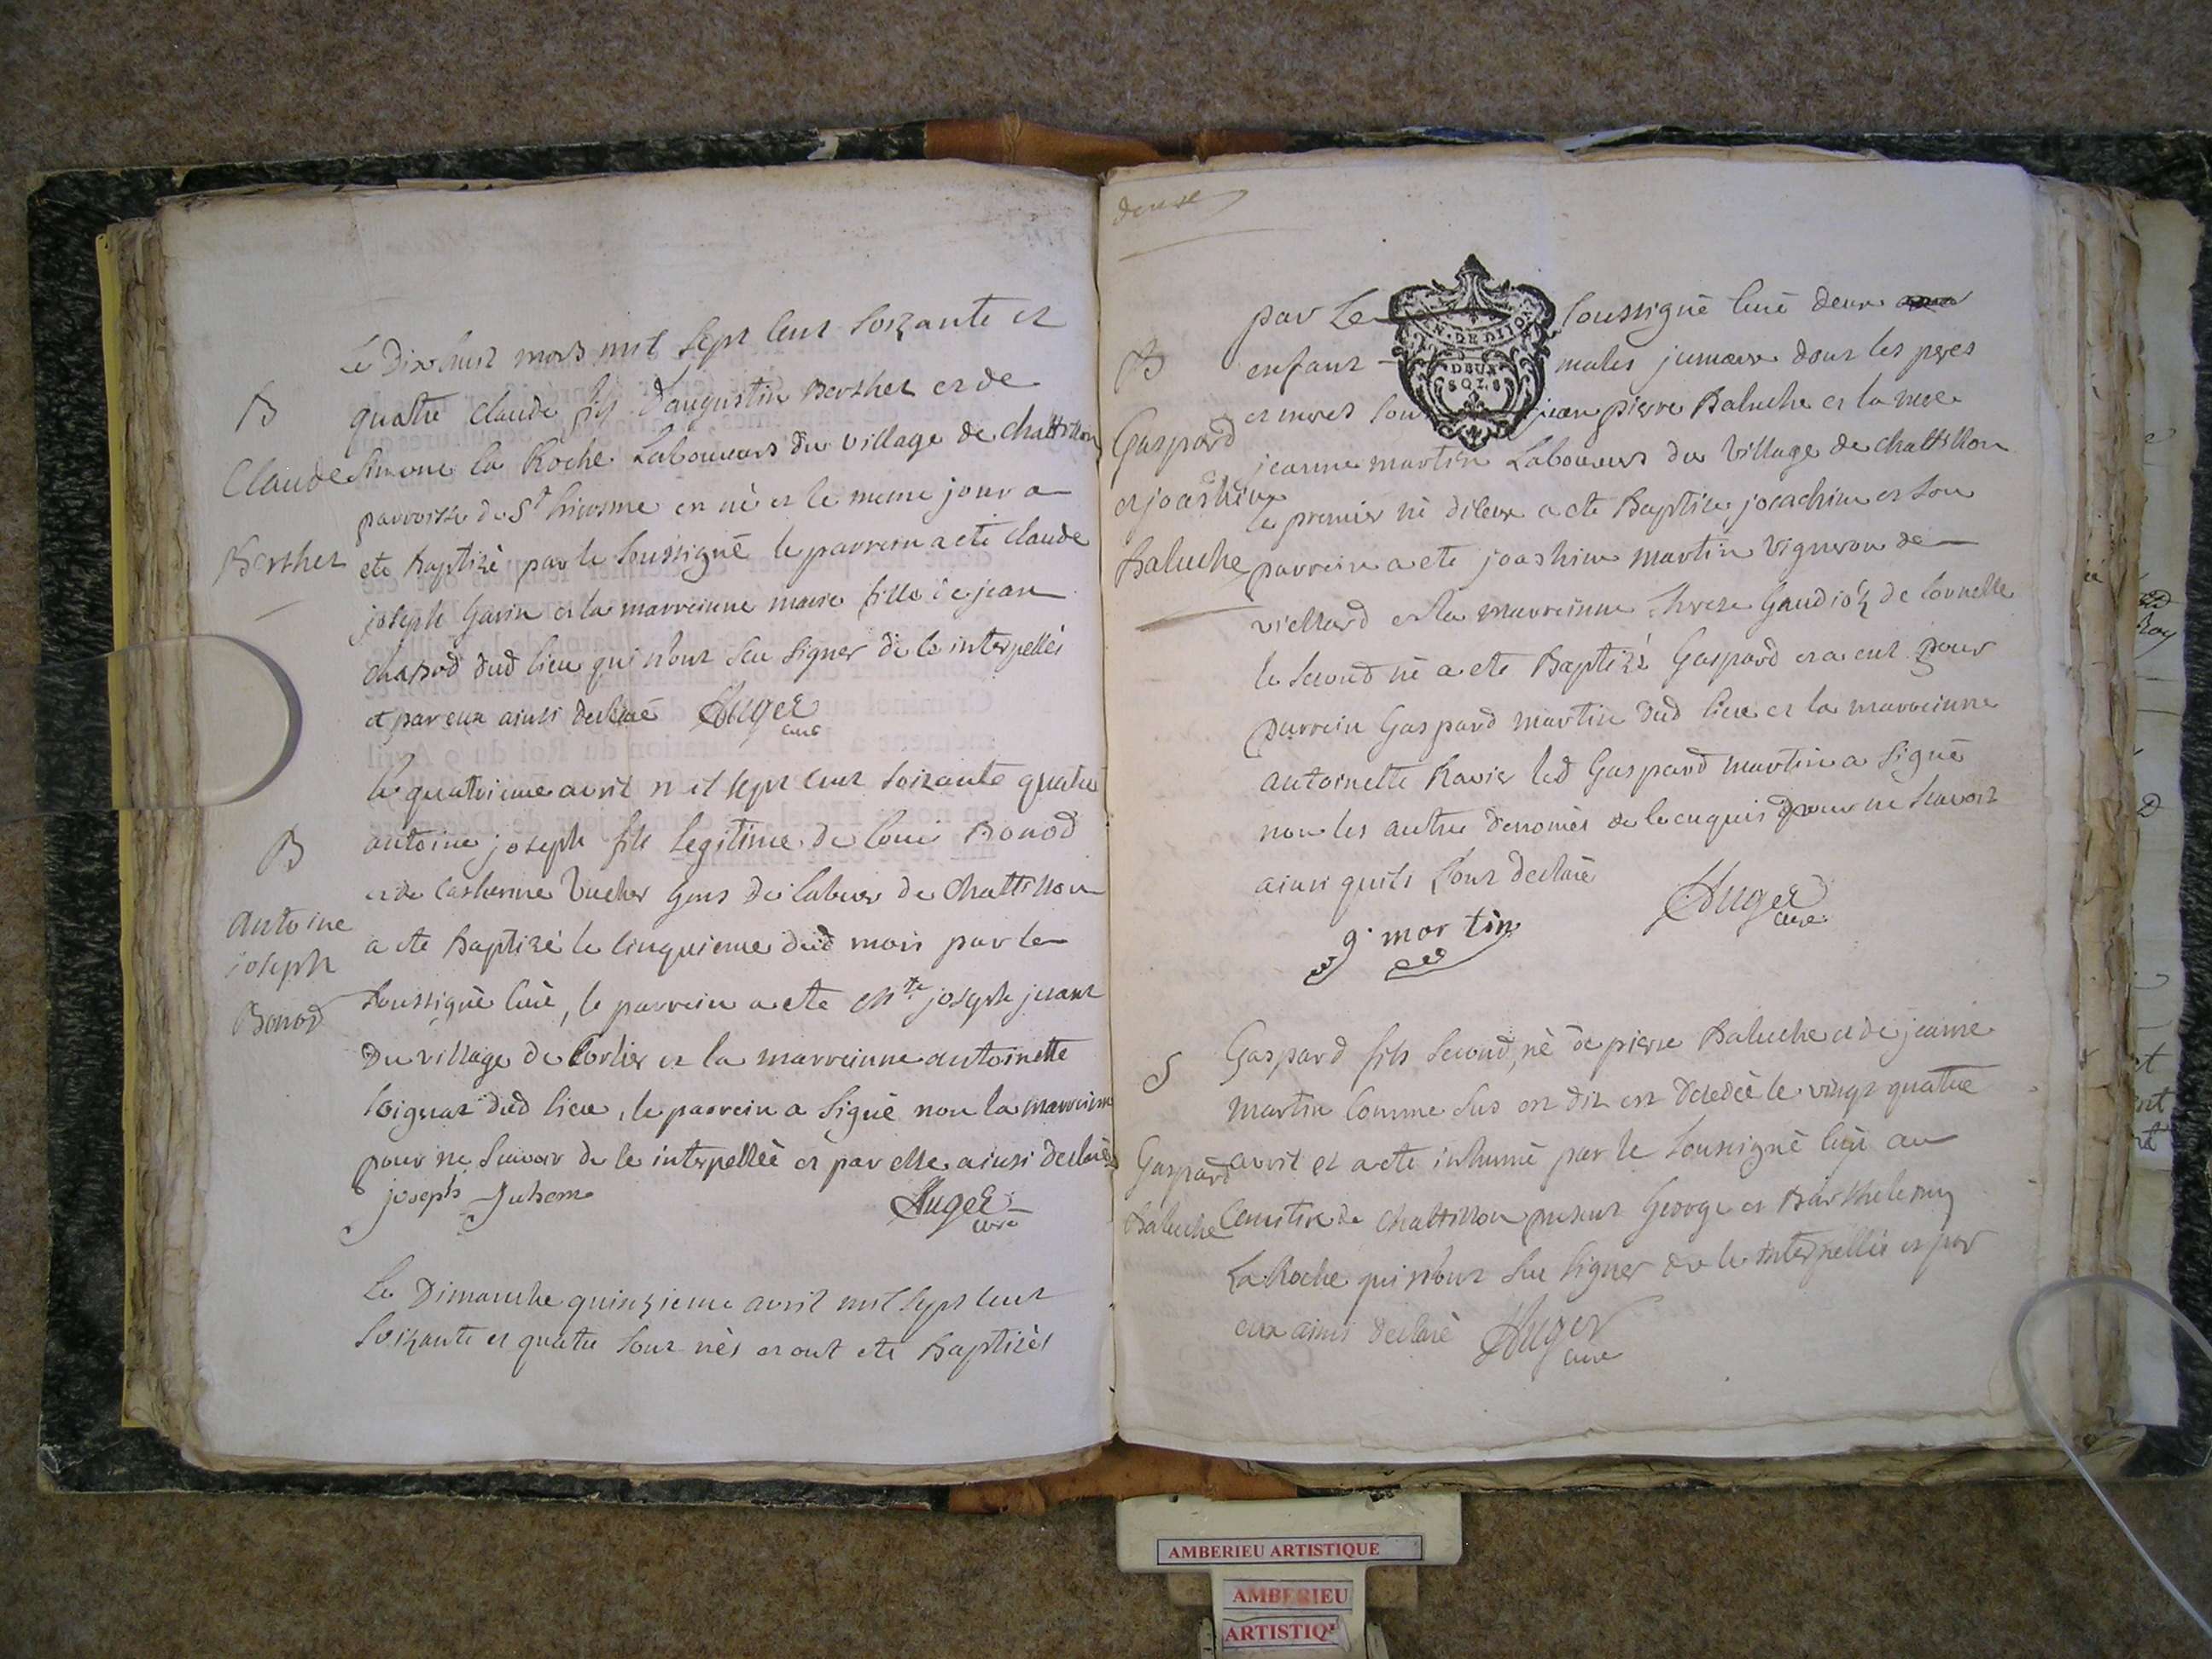 Le Dixhuit mars mil sept cent soixante et
B
quatre claude fils d'augustin Berthet et de
Claude
simone la Roche Laboureurs du village de chattillon
parroisse de St hierosme en né et le meme jour a
Berthet
ete Baptizé par le soussigné le parrein a ete claude
joseph Gavin et la marreinne marie fille de jean
chapod dud lieu qui n'ont sceu signer de ce interpellés
et par eux ainsi declaré Auger
curé
Le quatrieme avril mil sept cent soixante quatre
B
antoine joseph fils legitime de Bonod
Antoine
joseph
Bonod
et de Catherine vucher gens de labeur de chattillon
a ete Baptizé le cinquieme dud mois par le
soussigné curé, le parrein a ete joseph
du village de Corlier et la marreinne antoinette
dud lieu, le parrein a signé non la marreinne
pour ne scavoir de ce interpellée et par elle ainsi declaré
joseph Auger
curé
Le Dimanche quinzieme avril mil sept cent
soixante et quatre sont nés et ont ete Baptizés
par Le soussigné curé deux
GEN. DE DIJON
DEUX
SOLS
B
enfant males jumeaux dont les peres
et meres sont jean pierre Baluche et la mere
Gaspard
et joachim
Baluche
jeanne martin Laboureurs du village de chattillon
le premier né diceux a ete Baptizé joachim et son
parrein a ete joachim martin vigneron de
vieillard et la marreinne de Cornelle
le second né a ete Baptizé Gaspard et a eut pour
parrein Gaspard martin dud lieu et la marreinne
antoinette Ravier led Gaspard martin a signé
non les autre denomés de ce enquis pour ne scavoir
ainsi quils l'ont declaré
Auger
curé
g. martin
S
Gaspard fils second né de pierre Baluche et de jeanne
martin comme sus est dit est decedé le vingt quatre
Gaspard
Baluche
avril et a ete inhumé par le soussigné curé au
cemitire de chattillon present George et Barthelemy
La Roche qui n'ont sceu signer de ce interpellés et par
eux ainsi declaré Auger
curé
AMBERIEU ARTISTIQUE
AMBERIEU
ARTISTIQ